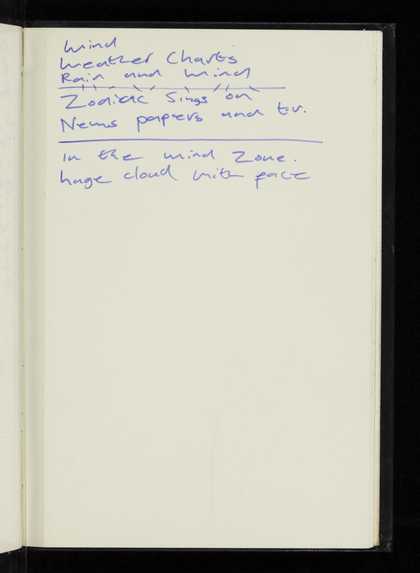 Wind
Weather Charts
Rain and Wind
Zodiac Sings on
News papers and tv.
in the wind Zone.
huge cloud with face